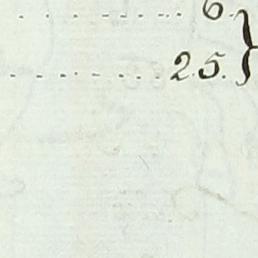 . . . . . . . . 6. }
. . . . . . . . 25. }